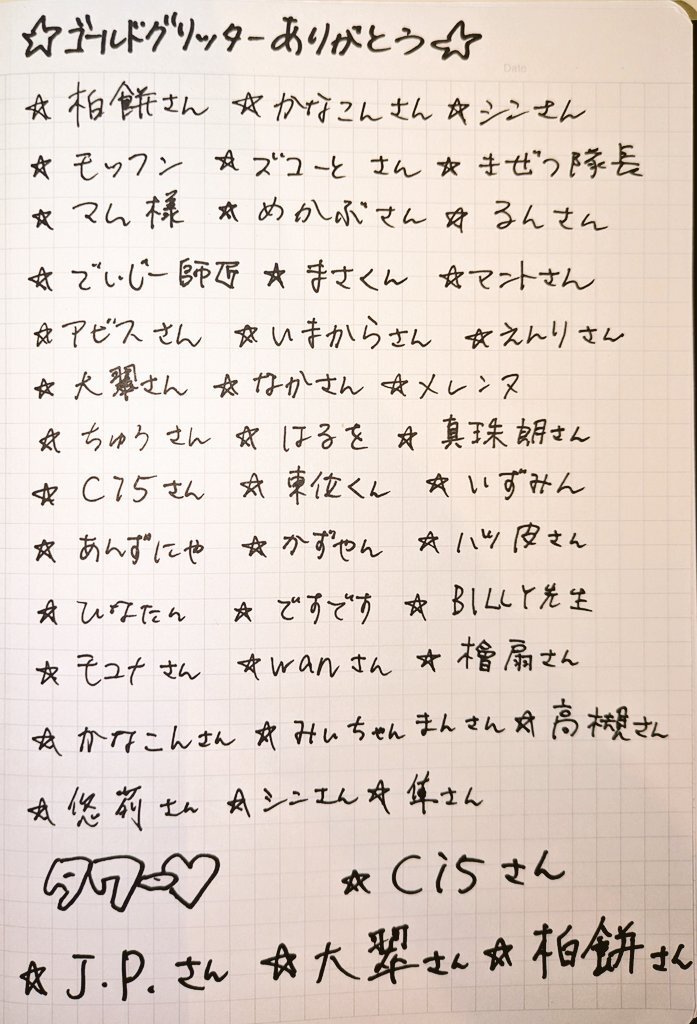 ☆ゴールドグリッターありがとう☆
Date
☆ 柏餅さん ☆ かなこんさん ☆ シンさん
☆ モッフン ☆ ズコーと さん ☆ まぜつ隊長
☆ マム様 ☆ めかぶさん ☆ るんさん
☆ でぃじー師匠 ☆ まさくん ☆ マントさん
☆ アビスさん ☆ いまからさん ☆ えんりさん
☆ 大翠さん ☆ なかさん ☆ メレンヌ
☆ ちゅうさん ☆ はるを ☆ 真珠朗さん
☆ Ci5さん ☆ 東位くん ☆ いずみん
☆ あんずにゃ ☆ かずやん ☆ ハツ皮さん
☆ ひなたん ☆ ですです ☆ BILLY先生
☆ モユナさん ☆ wanさん ☆ 檜扇さん
☆ かなこんさん ☆ みぃちゃんまんさん ☆ 高槻さん
☆ 悠莉さん ☆ シンさん ☆ 隼さん
タワー♡ ☆ Ci5さん
☆ J.P.さん ☆ 大翠さん ☆ 柏餅さん